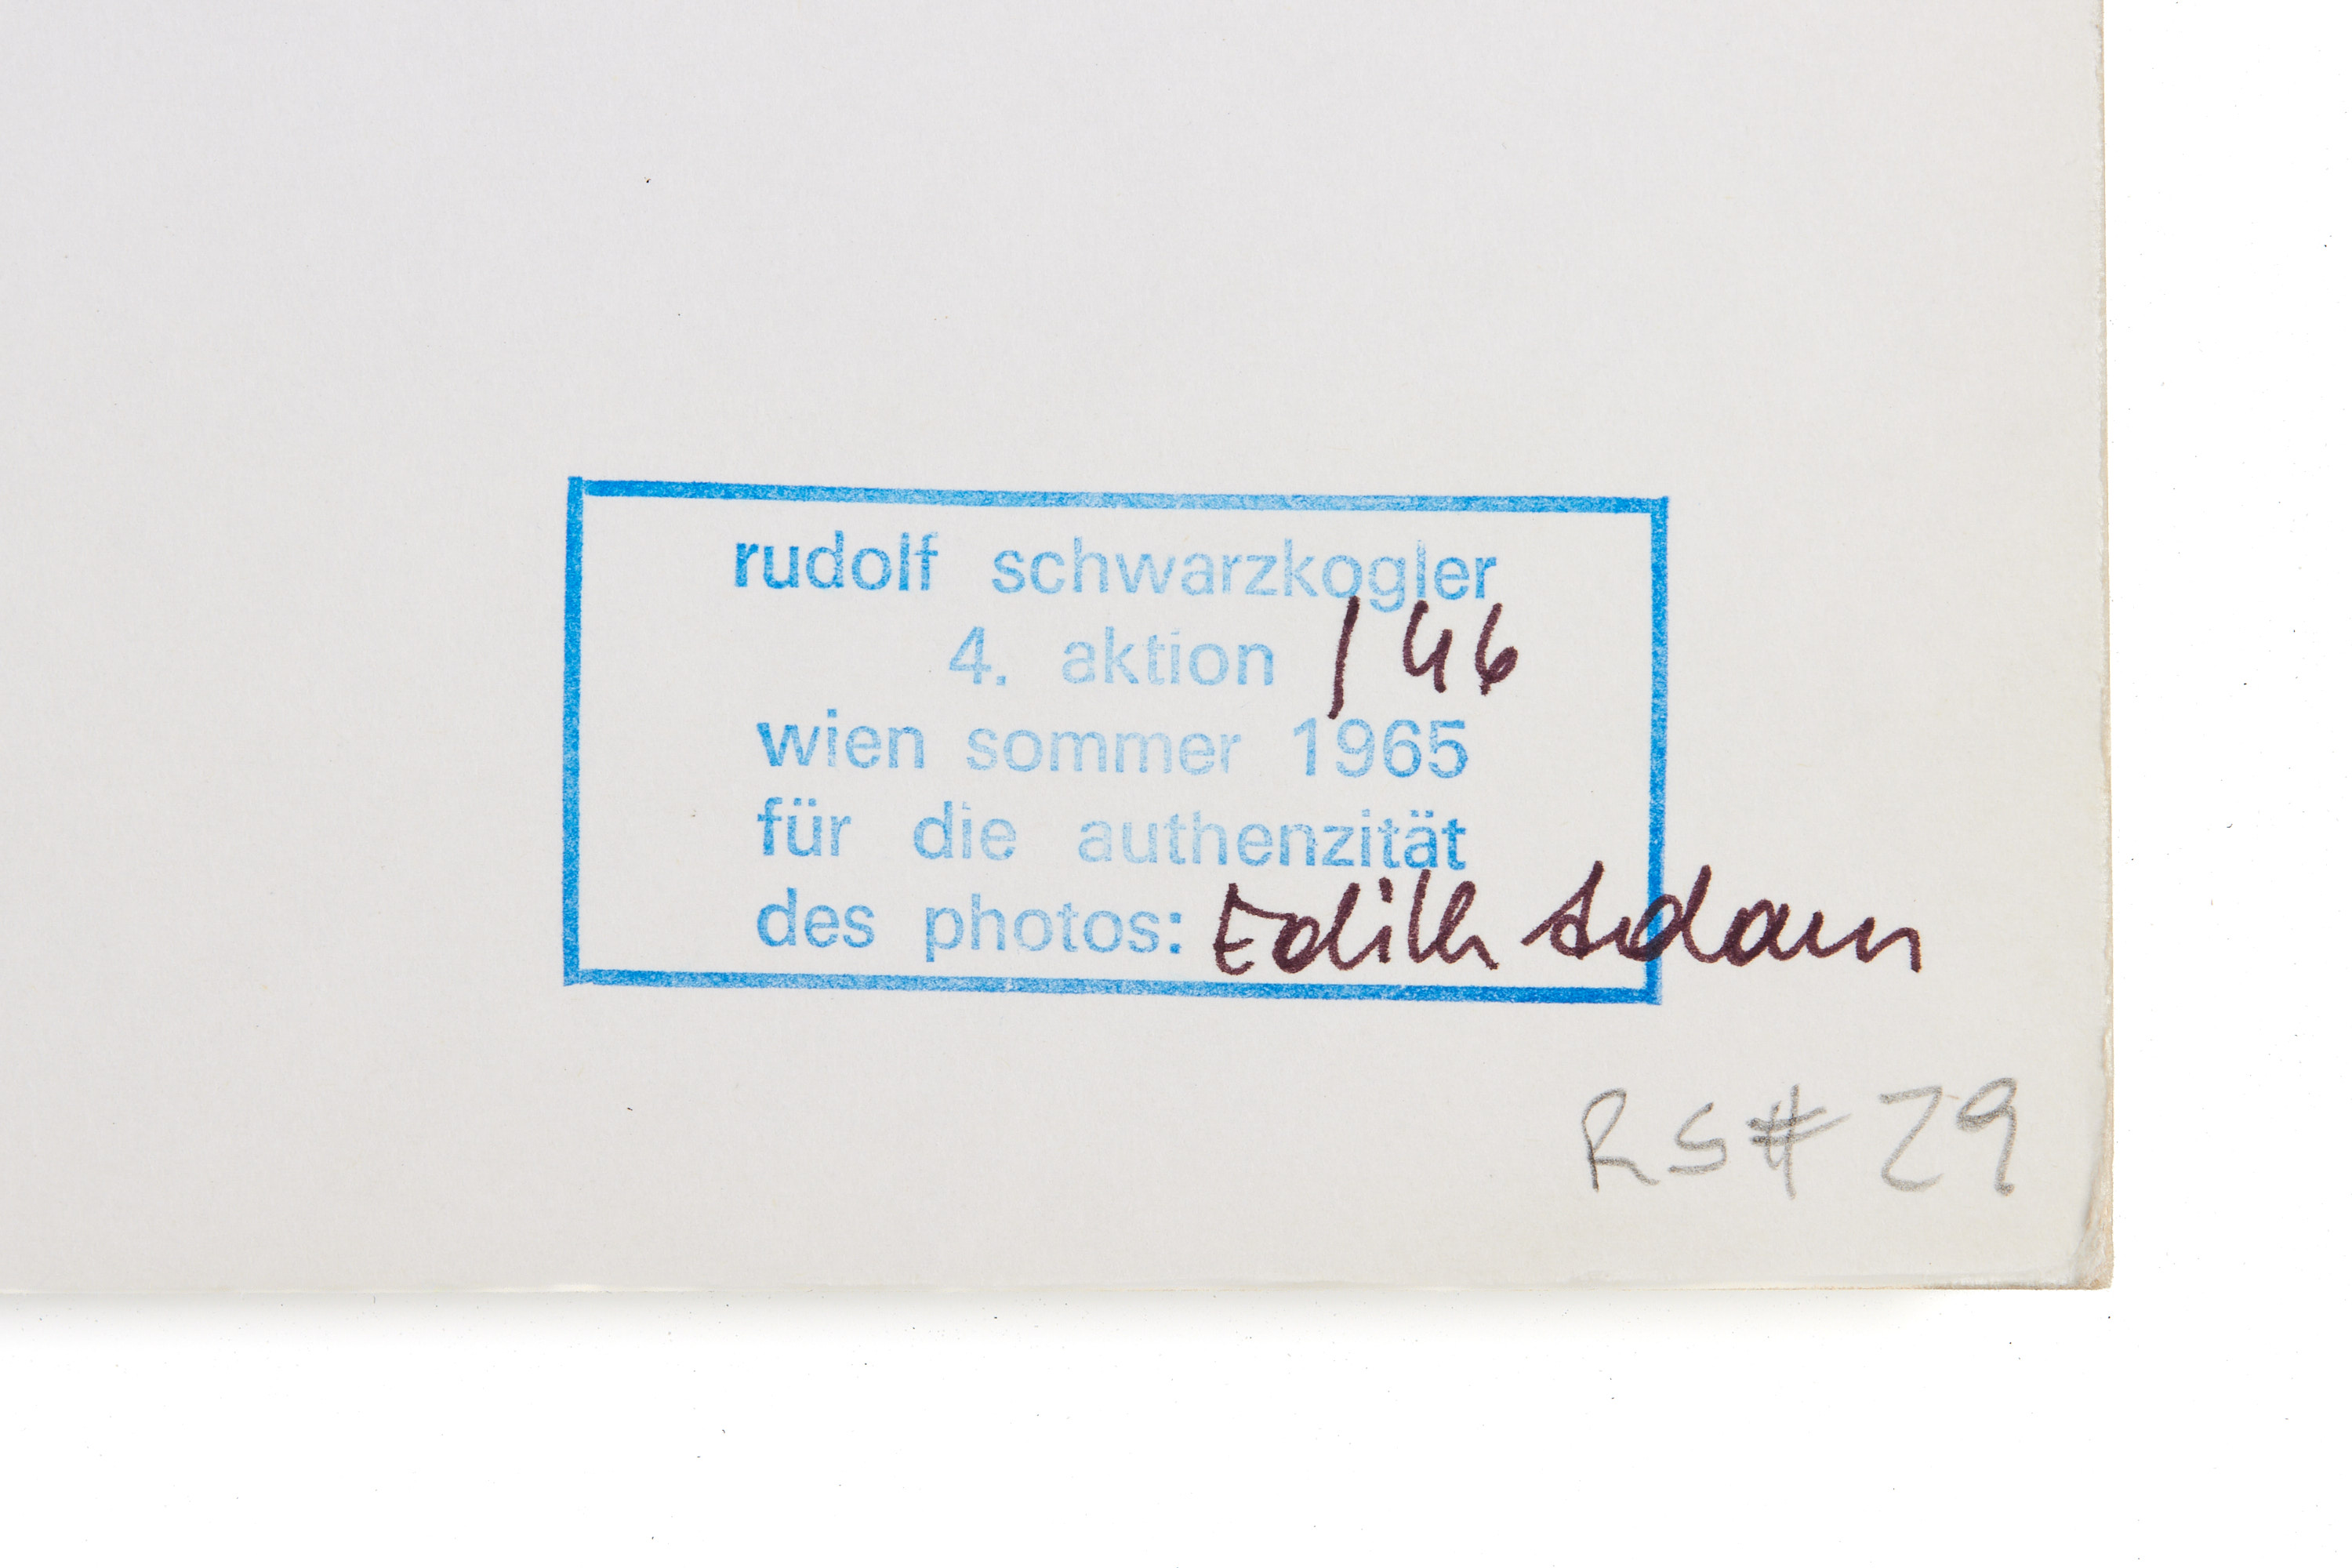 rudolf schwarzkogler
4. aktion / 46
wien sommer 1965
für die authenzität
des photos: Edith Adam
RS# 29